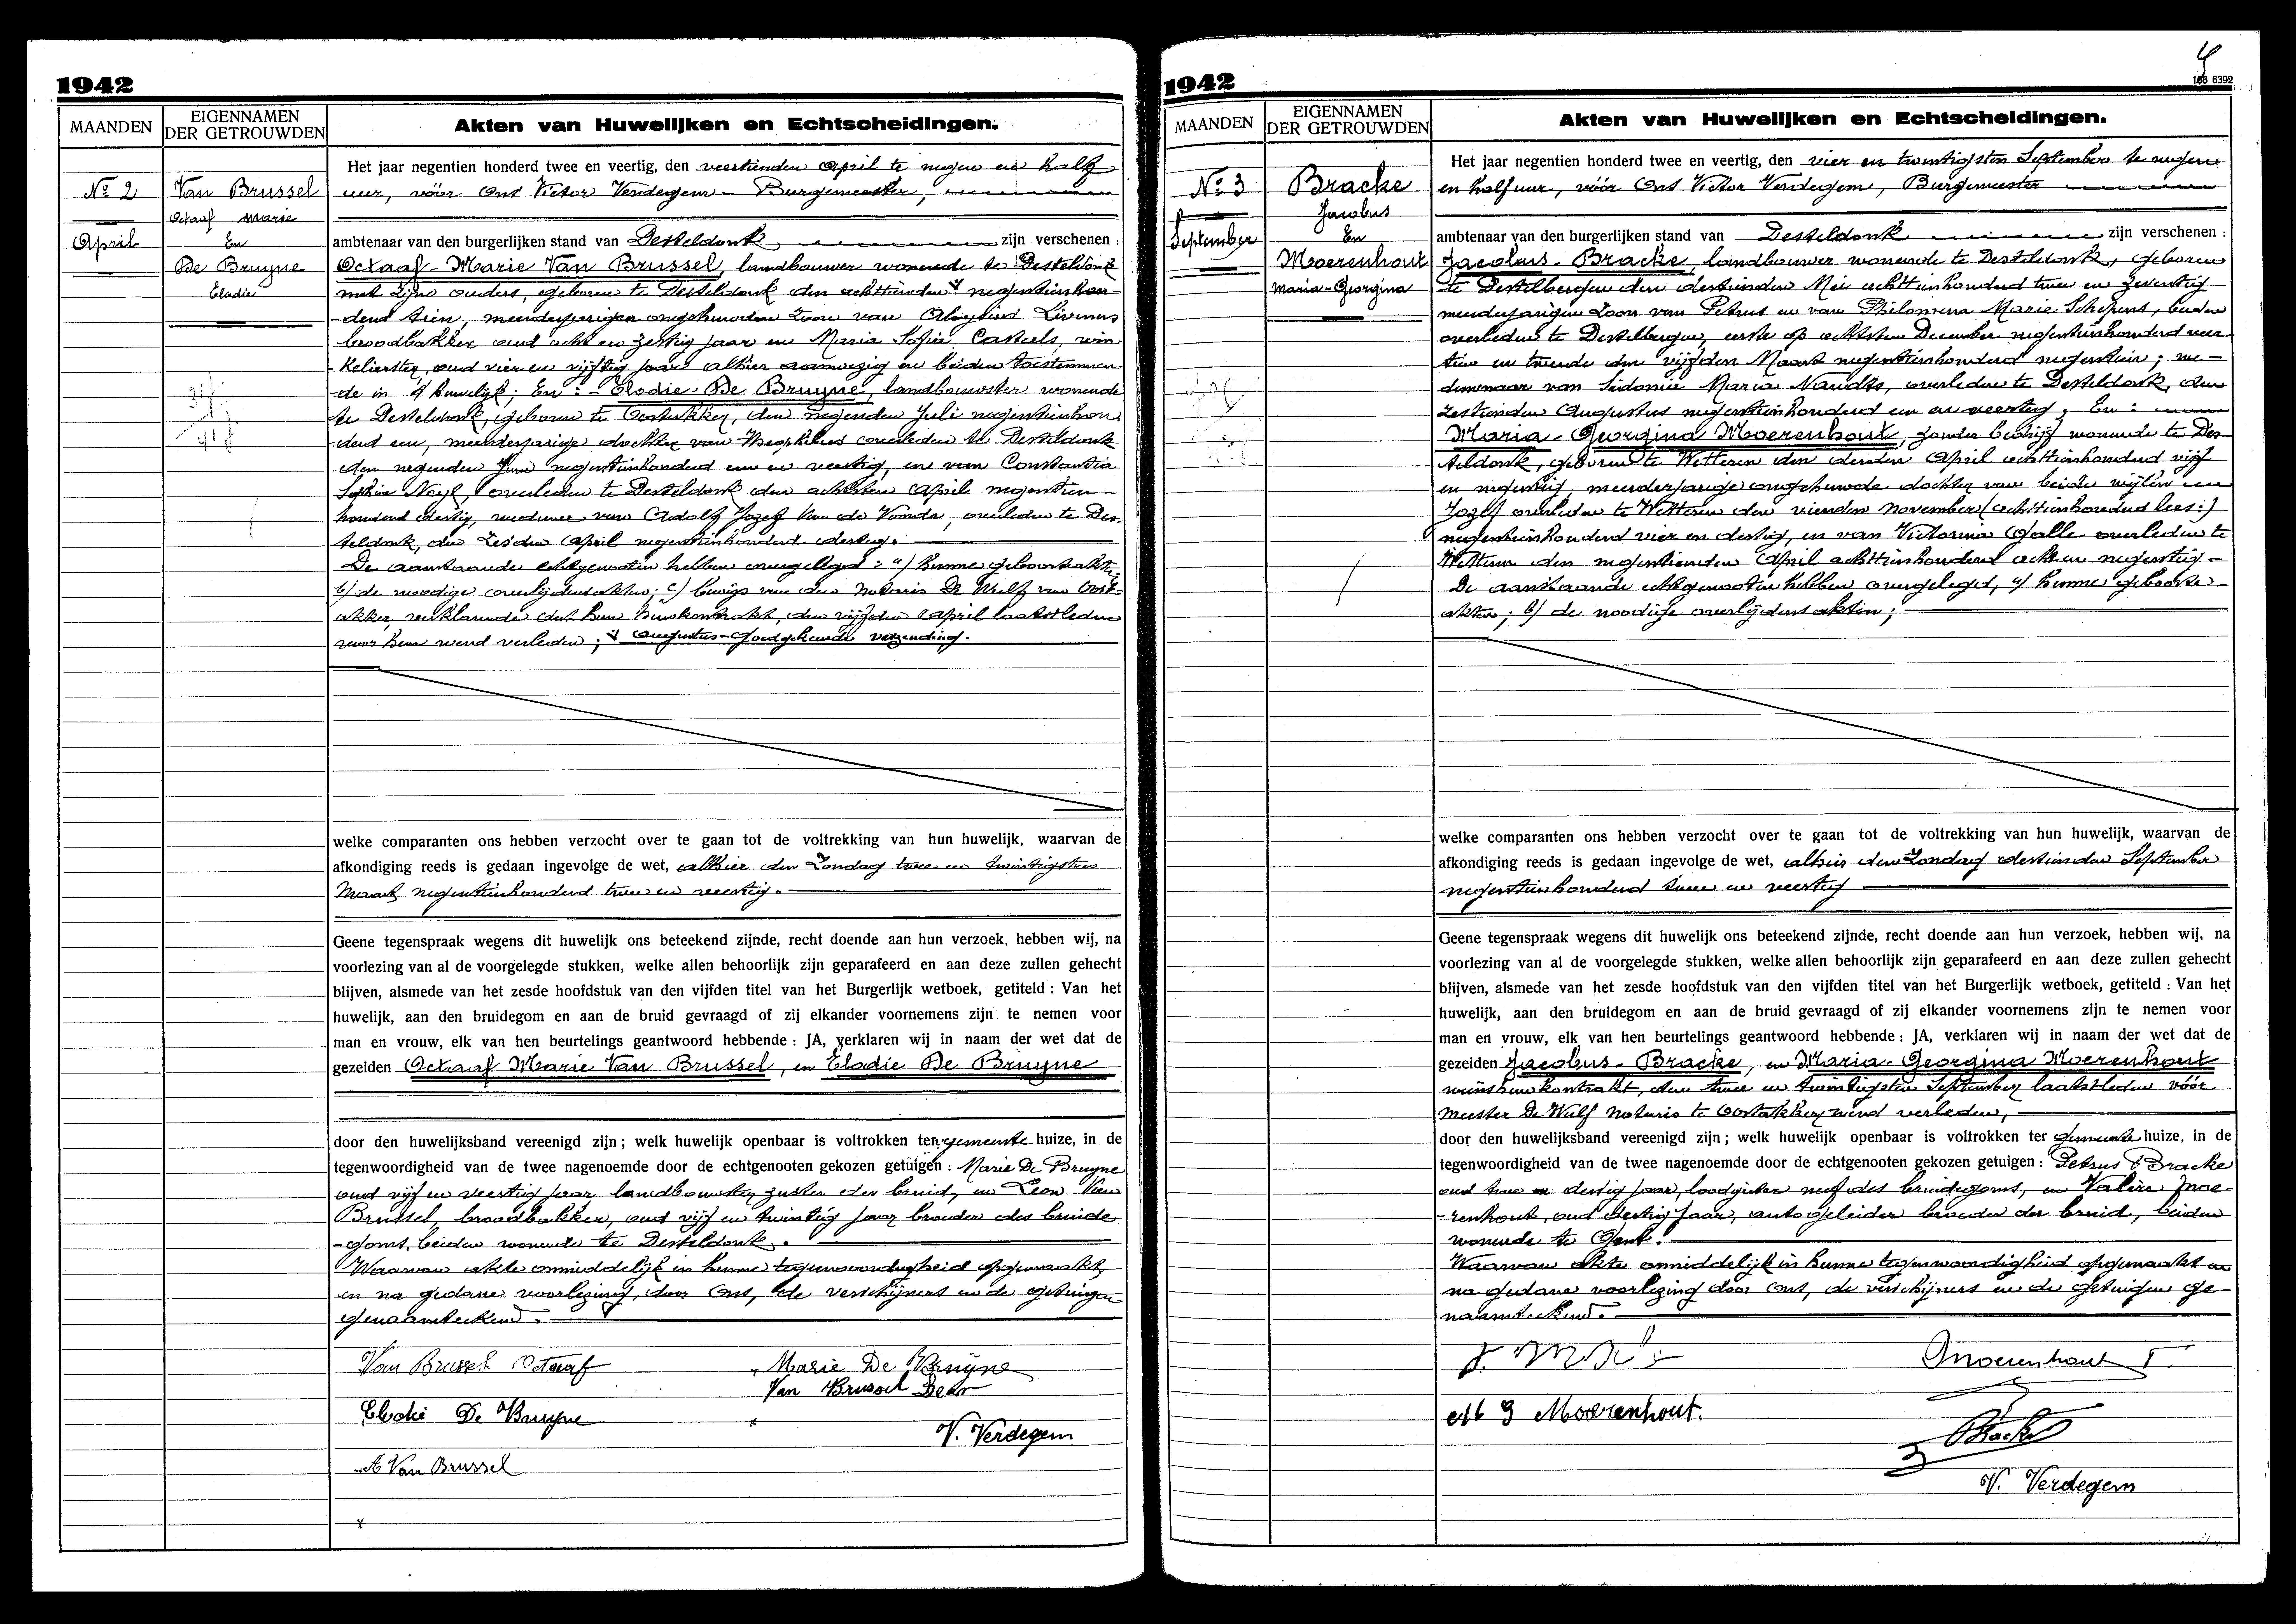 1942
MAANDEN
EIGENNAMEN
DER GETROUWDEN
Akten van Huwelijken en Echtscheidingen.
No 2
April
Van Brussel
Octaaf Marie
En
De Bruyne
Elodie
Het jaar negentien honderd twee en veertig, den veertienden April te negen en half
uur, vóór Ons Victor Verdegem - Burgemeester,
ambtenaar van den burgerlijken stand van Desteldonk zijn verschenen :
Octaaf-Marie Van Brussel, landbouwer wonende te Desteldonk
met zijne ouders, geboren te Desteldonk den achttienden negentienhon-
derd tien, meerderjarigen ongehuwden zoon van Aloysius Livinus
broodbakker oud acht en zestig jaar en Maria Sofia Casteels, win-
kelierster, oud vier en vijftig jaar alhier aanwezig en beiden toestemmen-
de in 't huwelijk; En : - Elodie De Bruyne, landbouwster wonende
te Desteldonk, geboren te Oostakker, den negenden Juli negentienhon
derd een, meerderjarige dochter van Theophilus overleden te Desteldonk
den negenden Juni negentienhonderd een en veertig, en van Constantia
Sophia Neyt, overleden te Desteldonk den achtsten April negentien-
honderd dertig, weduwe van Adolf Jozef Van de Voorde, overleden te Des-
teldonk, den zesden April negentienhonderd dertig.
De aanstaande echtgenooten hebben overgelegd : a) hunne geboorteakten,
b) de noodige overlijdensakten; c) bewijs van den Notaris De Wulf van Oost-
akker, verklarende dat hun huwkontrakt, den vijfden April laatstleden
voor hem werd verleden; Augustus-Goedgekeurde verzending.
welke comparanten ons hebben verzocht over te gaan tot de voltrekking van hun huwelijk, waarvan de
afkondiging reeds is gedaan ingevolge de wet, alhier den Zondag twee en twintigsten
Maart negentienhonderd twee en veertig.
Geene tegenspraak wegens dit huwelijk ons beteekend zijnde, recht doende aan hun verzoek, hebben wij, na
voorlezing van al de voorgelegde stukken, welke allen behoorlijk zijn geparafeerd en aan deze zullen gehecht
blijven, alsmede van het zesde hoofdstuk van den vijfden titel van het Burgerlijk wetboek, getiteld : Van het
huwelijk, aan den bruidegom en aan de bruid gevraagd of zij elkander voornemens zijn te nemen voor
man en vrouw, elk van hen beurtelings geantwoord hebbende : JA, verklaren wij in naam der wet dat de
gezeiden Octaaf Marie Van Brussel, en Elodie De Bruyne
door den huwelijksband vereenigd zijn ; welk huwelijk openbaar is voltrokken ten gemeente huize, in de
tegenwoordigheid van de twee nagenoemde door de echtgenooten gekozen getuigen : Marie De Bruyne
oud vijf en veertig jaar landbouwster, zuster der bruid, en Leon Van
Brussel, broodbakker, oud vijf en twintig jaar broeder des bruide
-goms, beiden wonende te Desteldonk.
Waarvan akte onmiddelijk in hunne tegenwoordigheid opgemaakt,
en na gedane voorlezing, door Ons, de verschijners en de getuigen
genaamteekend.
Van Brussel Octaaf
Marie De Bruyne
Van Brussel Leon
Elodie De Bruyne
V. Verdegem
A Van Brussel
1942
188 6392
MAANDEN
EIGENNAMEN
DER GETROUWDEN
Akten van Huwelijken en Echtscheidingen.
No 3
September
Bracke
Jacobus
En
Moerenhout
Maria-Georgina
Het jaar negentien honderd twee en veertig, den vier en twintigsten September te negen
en half uur, vóór Ons Victor Verdegem, Burgemeester
ambtenaar van den burgerlijken stand van Desteldonk zijn verschenen :
Jacobus - Bracke, landbouwer wonende te Desteldonk, geboren
te Destelbergen den dertienden Mei achttienhonderd twee en zeventig
meerderjarigen Zoon van Petrus en van Philomena Marie Schepens, beiden
overleden te Destelbergen, eerste op achtsten December negentienhonderd veer
tien en tweede den vijfden Maart negentienhonderd negentien; we-
duwnaar van Sidonie Maria Naudts, overleden te Desteldonk, den
zestienden Augustus negentienhonderd een en veertig, En :
Maria - Georgina Moerenhout, zonder bedrijf wonende te Des-
teldonk, geboren te Wetteren den derden April achttienhonderd vijf
en negentig meerderjarige ongehuwde dochter van beide wijlen
Jozef overleden te Wetteren den vierden november (achttienhonderd lees:)
negentienhonderd vier en dertig, en van Victorina Galle overleden te
Wetteren den negentienden April achttienhonderd acht en negentig -
De aanstaande echtgenooten hebben overgelegd, a) hunne geboorte-
akten; b) de noodige overlijdensakten;
welke comparanten ons hebben verzocht over te gaan tot de voltrekking van hun huwelijk, waarvan de
afkondiging reeds is gedaan ingevolge de wet, alhier den Zondag dertienden September
negentienhonderd twee en veertig
Geene tegenspraak wegens dit huwelijk ons beteekend zijnde, recht doende aan hun verzoek, hebben wij, na
voorlezing van al de voorgelegde stukken, welke allen behoorlijk zijn geparafeerd en aan deze zullen gehecht
blijven, alsmede van het zesde hoofdstuk van den vijfden titel van het Burgerlijk wetboek, getiteld : Van het
huwelijk, aan den bruidegom en aan de bruid gevraagd of zij elkander voornemens zijn te nemen voor
man en vrouw, elk van hen beurtelings geantwoord hebbende : JA, verklaren wij in naam der wet dat de
gezeiden Jacobus - Bracke, en Maria - Georgina Moerenhout
huwkontrakt, den twee en twintigsten September laatstleden vóór
Meester De Wulf Notaris te Oostakker, werd verleden,
door den huwelijksband vereenigd zijn ; welk huwelijk openbaar is voltrokken ter gemeente huize, in de
tegenwoordigheid van de twee nagenoemde door de echtgenooten gekozen getuigen : Petrus Bracke
oud twee en dertig jaar, loodgieter neef des bruidegoms, en Valère Moe-
-renhout, oud dertig jaar, autogeleider broeder der bruid, beiden
wonende te Gent.
Waarvan akte onmiddelijk in hunne tegenwoordigheid opgemaakt en
na gedane voorlezing door Ons, de verschijners en de getuigen ge-
naamteekend.
Moerenhout
M G Moerenhout.
Bracke
V. Verdegem